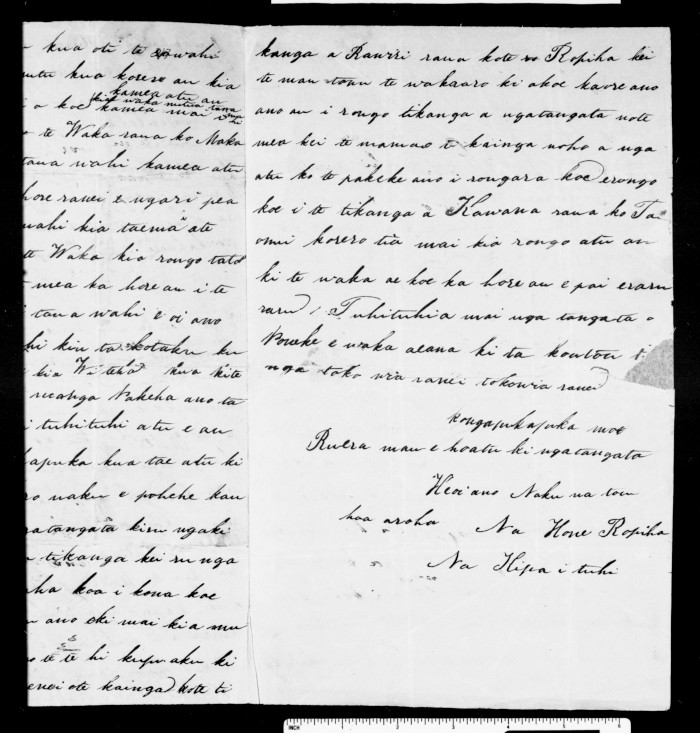 kua oti te wahi
kua korero au kia
kamea atu au
kia waka mutua tana
a koe kamea mai i
te Waka rana ko Maka
tana wahi kamea atu
hore ranei e ngari pea
wahi kia taema ate
te Waka kia rongo tatou
mea ka hore au i te
tana wahi e oi ano
ki ta kotaku ku
kia Wi teha kua kite
Pakeha ano ta
tuhituhi atu e au
kua tae atu ki
naku e pohehe kau
kiru ngaki
tikanga kei runga
ha koa i kona koe
ano oki mai kia mu
te te hi kupu aku ki
enei ote kainga kote ti
kanga a Rawiri rana kote Ropiha kei
te mau tonu te wakaaro ki akoe kaore ano
ano au i rongo tikanga a ngatangata note
mea kei te mamao te kainga noho a nga
atu ko te pakeke ano i rongara koe erongo
koe i te tikanga a Kawana rana ko Ta
omui korero tia mai kia rongo atu au
ki te waka ae koe ka hore au e pai eraru
raru i Tuhituhia mai nga tangata o
e waka aeana ki ta koutou ti
nga toko wia ranei tokowia ranei
kongapukapuka mo
Ruera mau e hoatu ki ngatangata
Heoi ano Naku na tou
hoa aroha Na Hone Ropiha
Na Hipa i tuhi
INCH 1 2 3 4 5